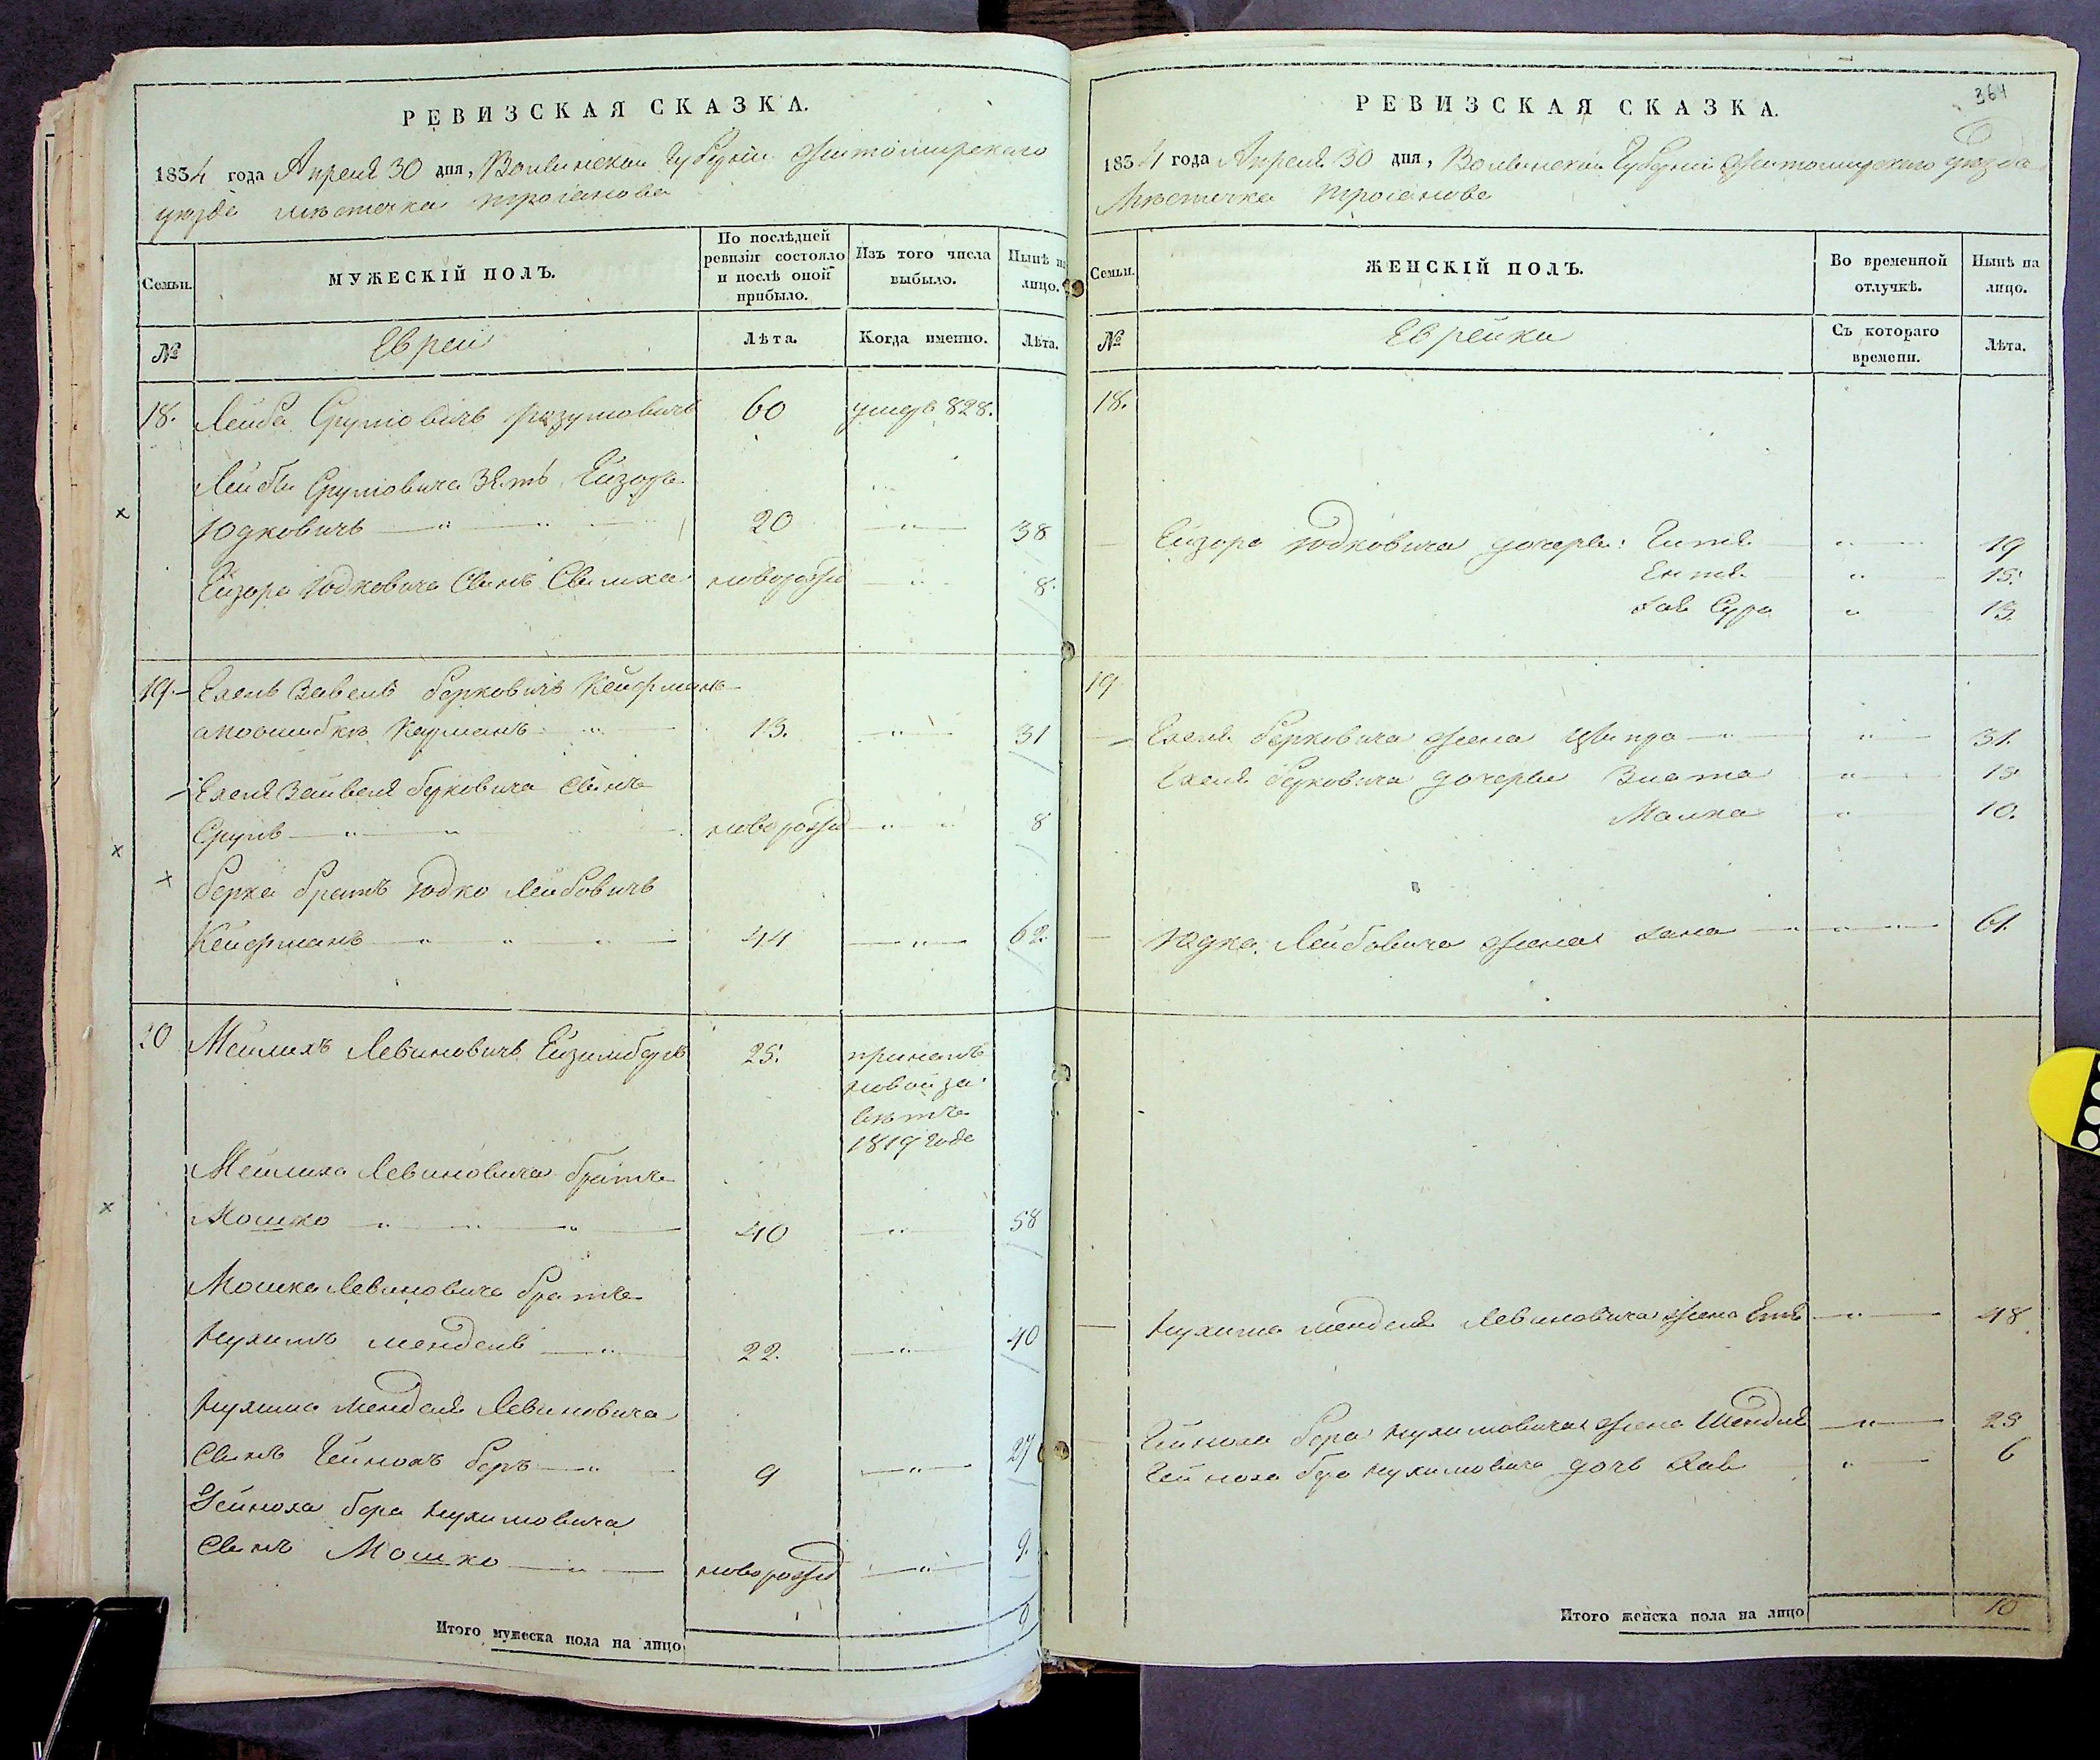 РЕВИЗСКАЯ СКАЗКА.
1834 года Апреля 30 дня, Волынской Губерніи Житомирскаго
уезда мѣстечка Троіанова
Семьи.
МУЖЕСКІЙ ПОЛЪ.
По послѣдней ревизіи состояло и послѣ оной прибыло.
Изъ того числа выбыло.
Нынѣ на лицо.
№
Евреи
Лѣта.
Когда именно.
Лѣта.
18. Лейба Сруліовичъ 60 умеръ 828.
Лейбы Сруліовича Зять Ейзоръ
Юдковичъ 20 38
Ейзора Юдковича Сынъ новорожд 8.
19. Ехель Завель Берковичъ Кейфманъ
апоошибкѣ Кауманъ 13. 31
Ехеля Зайвеля Берковича Сынъ
Сруль новорожд 8
Берка братъ Юдко Лейбовичъ
Кейфманъ 44 62.
20 Мейлихъ Левиновичъ 25. принялъ
новой за
вѣтъ
1819 года
Мейлиха Левиновича братъ
Мошко 40 58
Мошка Левиновича братъ
Нухимъ Мендель 22. 40
Нухима Менделя Левиновича
Сынъ Гейнохъ Беръ 9 27
Гейноха Бера Нухимовича
Сынъ Мошко новорожд 9.
Итого мужеска пола на лицо
364
РЕВИЗСКАЯ СКАЗКА.
1834 года Апреля 30 дня, Волынской Губерніи Житомирскаго уезда
Мѣстечка Троіанова
Семьи.
ЖЕНСКІЙ ПОЛЪ.
Во временной отлучкѣ.
Нынѣ на лицо.
№
Еврейки
Съ котораго времени.
Лѣта.
18.
Ейзора Юдковича дочери: Гитля 19
Ентля 15.
Хая Сура 13.
19
Ехеля Берковича жена Цыпра 31.
Ехеля Берковича дочери Злота 15
Малка 10.
Юдка Лейбовича жена Хана 61.
Нухима Менделя Левиновича жена Етя 48
Гейноха Бера Нухимовича жена Шендля 25
Гейноха Бера Нухимовича дочь Хая 6
Итого женска пола на лицо 10